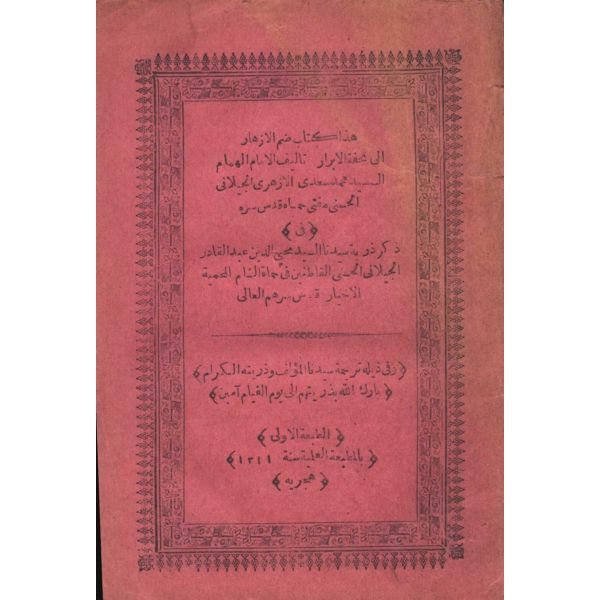 هذا كتاب ضم الازهار
الى تحفة الابرار تاليف الامام الهمام
السيد محمد سعدى الازهرى الجيلانى
الحسنى مفتى حماه قدس سره
﴿ فى ﴾
ذكر ذرية سيدنا السيد محيى الدين عبد القادر
الجيلانى الحسنى القاطنين فى حماة الشام المحمية
الاخيار قدس سرهم العالى
﴿ وفى ذيله ترجمة سيدنا المؤلف وذريته الكرام ﴾
﴿ بارك الله بذريتهم الى يوم القيام آمين ﴾
﴿ الطبعة الاولى ﴾
﴿ بالمطبعة العلمية سنة ﴾
﴿ هجريه ﴾